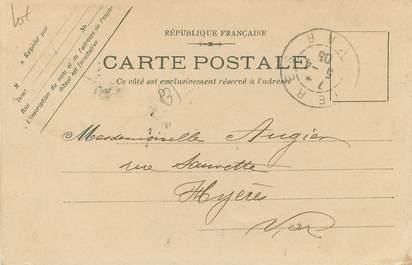 Lot
N°
Expédié par M
Demt
Rue
L'inscription du nom et de l'adresse de l'expéditeur est facultative
RÉPUBLIQUE FRANÇAISE
CARTE POSTALE
Ce côté est exclusivement réservé à l'adresse
83
Mesdemoiselles Augier
rue Sauvette
Hyères
Var